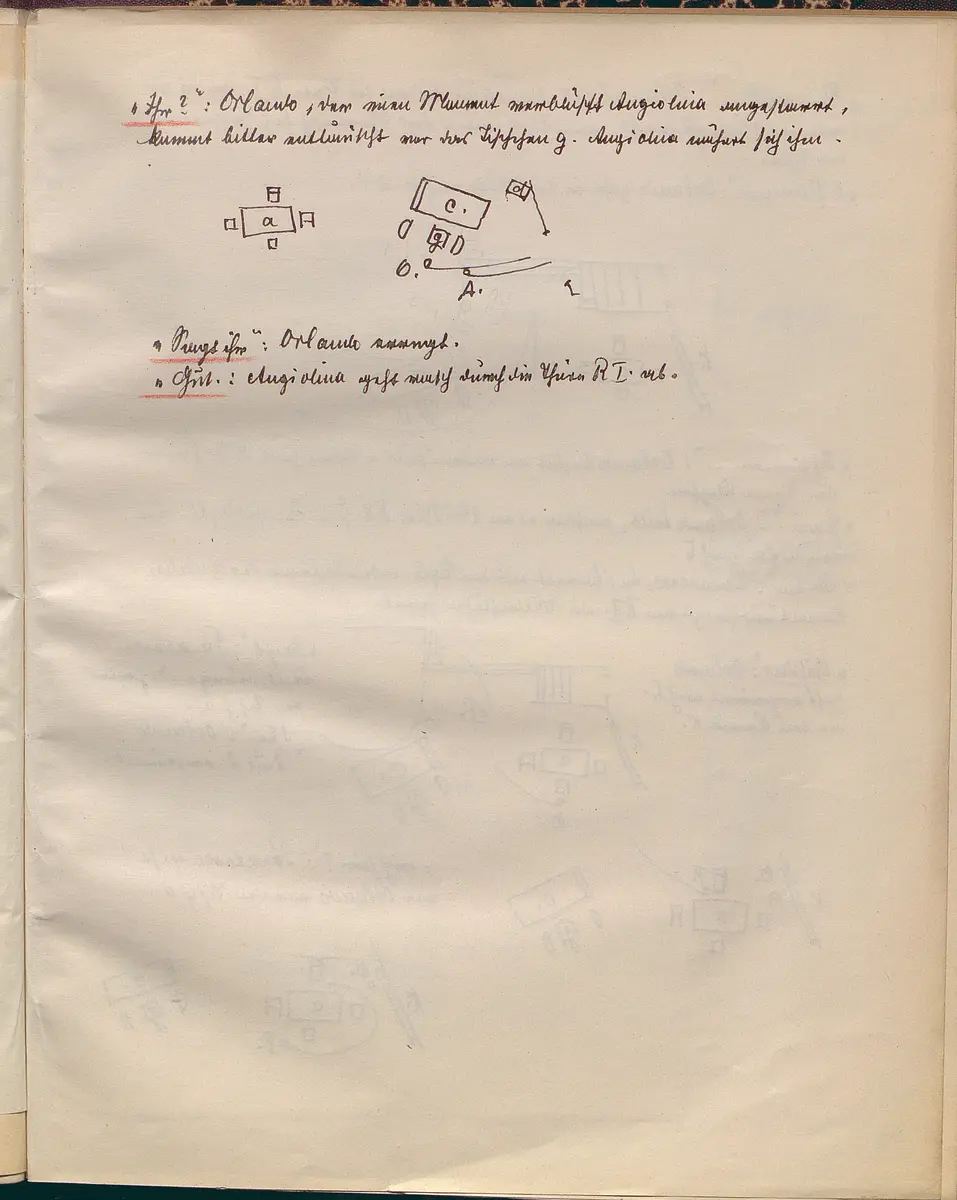 „Ihr?“: Orlando, der einen Moment verblüfft Angiolina angestarrt,
kommt bitter enttäuscht vor das Tischchen g. Angiolina nähert sich ihm.
a
c.
d
g
O.
A.
„Sagt ihr“: Orlando erregt.
„Gut.: Angiolina geht rasch durch die Thüre R I. ab.